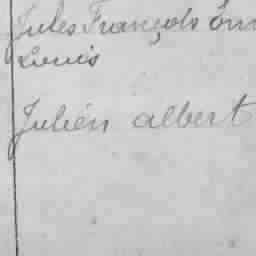 Jules François
Louis
Julien albert